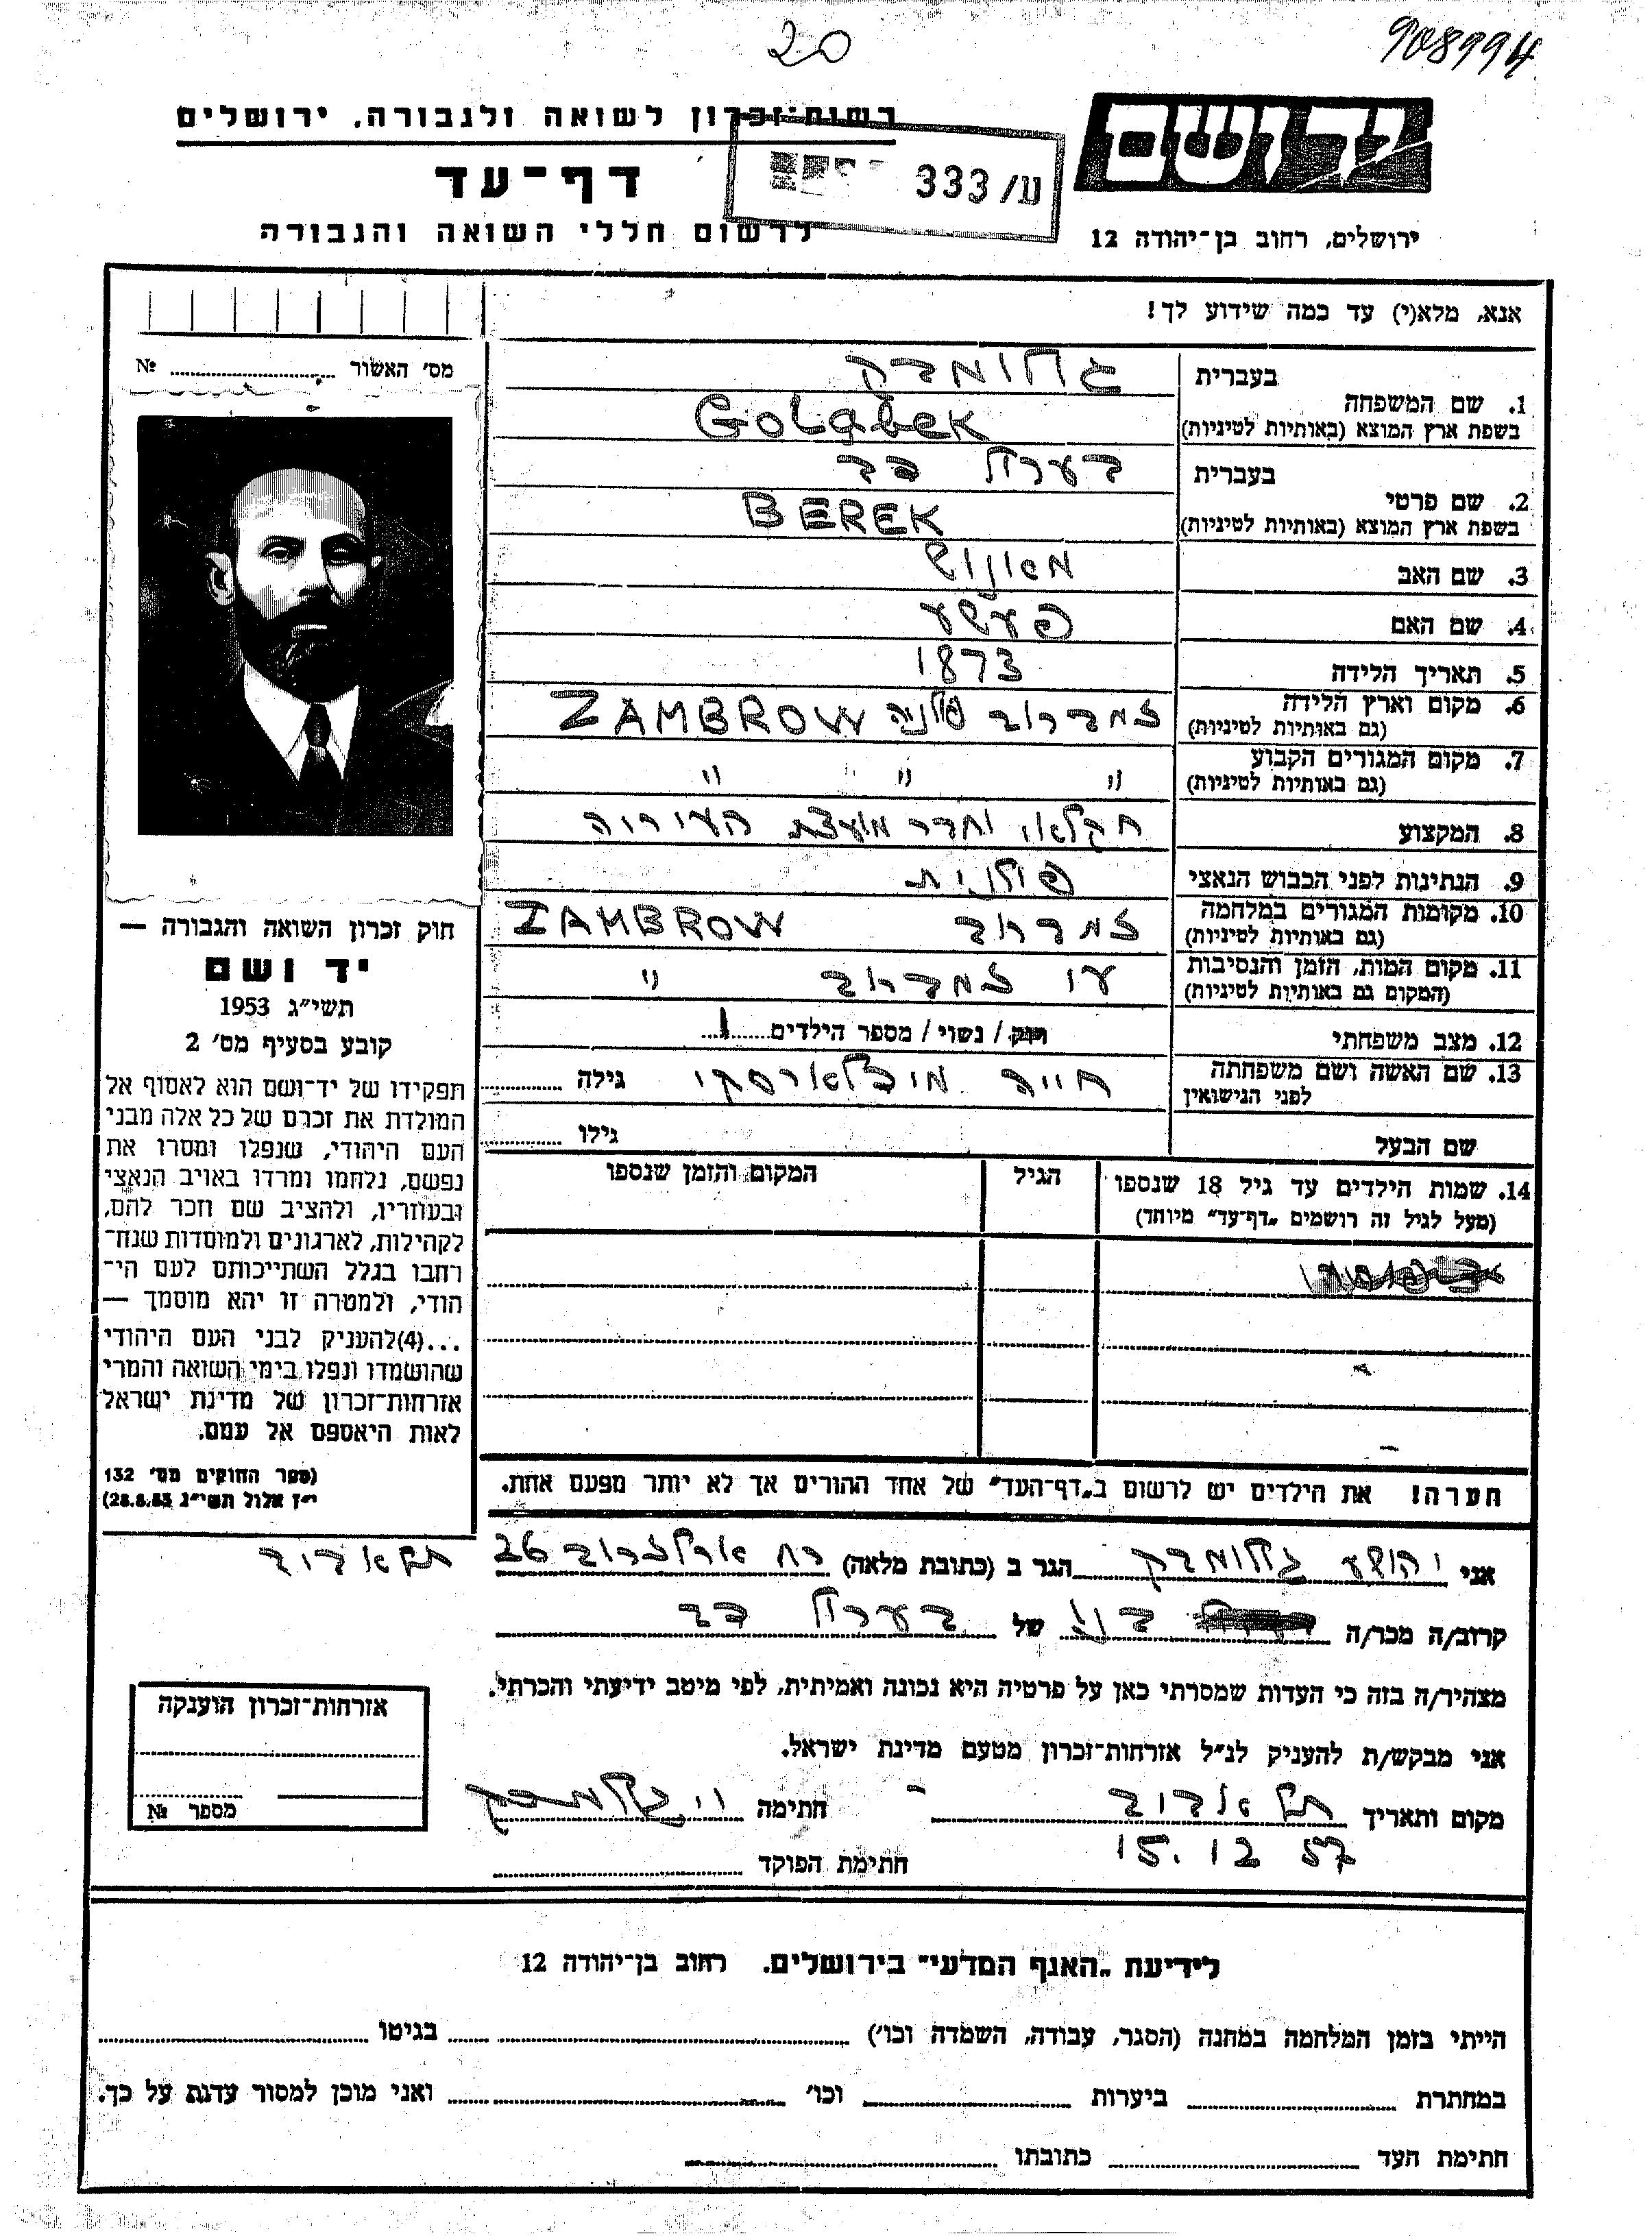 20
908994
יד ושם
ירושלים, רחוב בן-יהודה 12
רשות-זכרון לשואה ולגבורה, ירושלים
דף-עד
ע/ 333
לרשום חללי השואה והגבורה
אנא, מלא(י) עד כמה שידוע לך!
מס׳ האשור ........ №
בעברית גולומבק
1. שם המשפחה
בשפת ארץ המוצא (באותיות לטיניות) Gołąbek
בעברית בערל דב
2. שם פרטי
בשפת ארץ המוצא (באותיות לטיניות) BEREK
3. שם האב
4. שם האם פעשע
5. תאריך הלידה 1873
6. מקום וארץ הלידה זמברוב פולניה ZAMBROW
(גם באותיות לטיניות)
7. מקום המגורים הקבוע " " "
(גם באותיות לטיניות)
8. המקצוע חקלאי וחבר מועצת העיריה
9. הנתינות לפני הכבוש הנאצי פולנית
10. מקומות המגורים במלחמה זמברוב ZAMBROW
(גם באותיות לטיניות)
11. מקום המות, הזמן והנסיבות זמברוב "
(המקום גם באותיות לטיניות)
12. מצב משפחתי רווק / נשוי / מספר הילדים 1
13. שם האשה ושם משפחתה חיה גילה ........
לפני הנישואין
שם הבעל גילו ........
14. שמות הילדים עד גיל 18 שנספו הגיל המקום והזמן שנספו
(מעל לגיל זה רושמים „דף-עד״ מיוחד)
הערה! את הילדים יש לרשום ב„דף-העד״ של אחד ההורים אך לא יותר מפעם אחת.
חוק זכרון השואה והגבורה —
יד ושם
תשי״ג 1953
קובע בסעיף מס׳ 2
תפקידו של יד-ושם הוא לאסוף אל
המולדת את זכרם של כל אלה מבני
העם היהודי, שנפלו ומסרו את
נפשם, נלחמו ומרדו באויב הנאצי
ובעוזריו, ולהציב שם וזכר להם,
לקהילות, לארגונים ולמוסדות שנח-
רבו בגלל השתייכותם לעם הי-
הודי, ולמטרה זו יהא מוסמך —
...(4)להעניק לבני העם היהודי
שהושמדו ונפלו בימי השואה והמרי
אזרחות-זכרון של מדינת ישראל
לאות היאספם אל עמם.
(ספר החוקים מס׳ 132
י״ז אלול תשי״ג 28.8.53)
אני יהושע גולומבק הגר ב (כתובת מלאה) רח ארלוזרוב 26 תל אביב
קרוב/ה מכר/ה בנו של בערל דב
מצהיר/ה בזה כי העדות שמסרתי כאן על פרטיה היא נכונה ואמיתית, לפי מיטב ידיעתי והכרתי.
אני מבקש/ת להעניק לנ״ל אזרחות-זכרון מטעם מדינת ישראל.
מקום ותאריך תל אביב חתימה י. גולומבק
15. 12 57
חתימת הפוקד ........
אזרחות-זכרון הוענקה
מספר №
לידיעת „האגף המדעי״ בירושלים. רחוב בן-יהודה 12
הייתי בזמן המלחמה במחנה (הסגר, עבודה, השמדה וכו׳) ........ בגיטו ........
במחתרת ........ ביערות ........ וכו׳ ........ ואני מוכן למסור עדות על כך.
חתימת העד ........ כתובתו ........